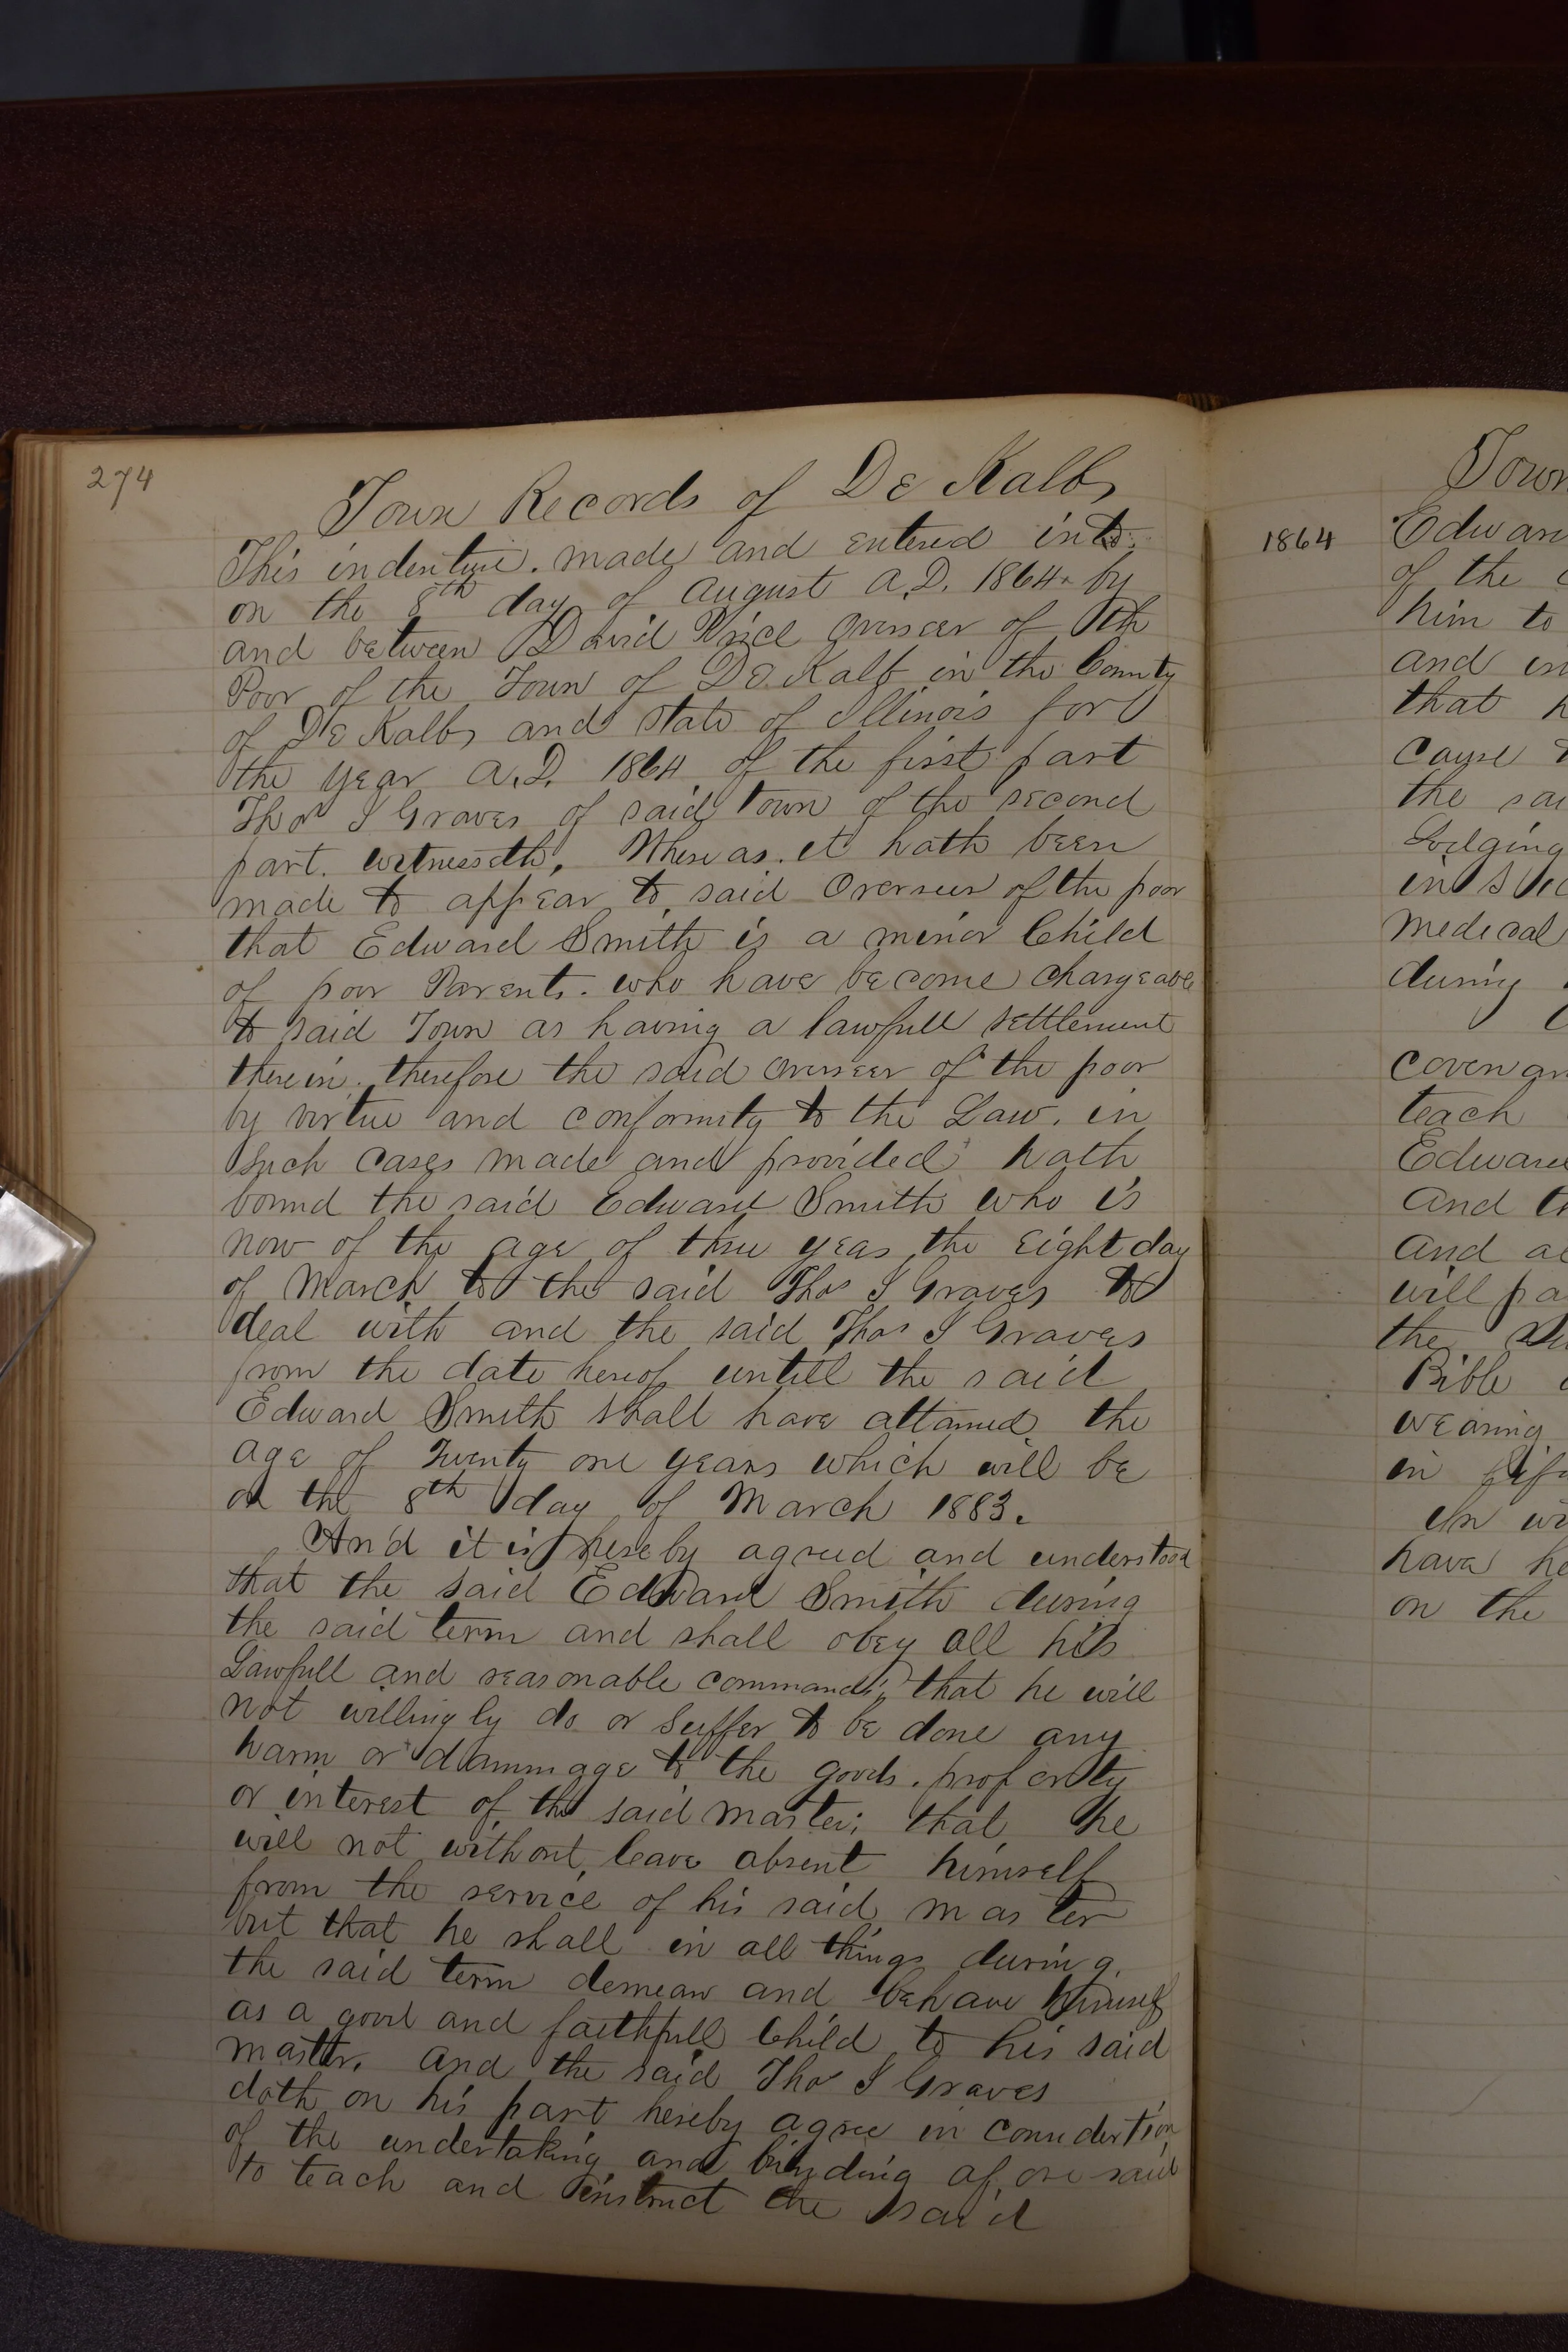 274
Town Records of De Kalb
This indenture. made and entered into
on the 8th day of August A.D. 1864 by
and between David Price Overseer of th
Poor of the Town of De Kalb in the County
of De Kalb and State of Illinois for
the year A.D. 1864 of the first part
Thos S Graves of said Town of the second
part. witnesseth, Whereas. it hath been
made to appear to said Overseer of the poor
that Edward Smith is a minor Child
of poor Parents. who have become chargeable
to said Town as having a lawfull settlement
therein. therefore the said overseer of the poor
by virtue and conformity to the Law. in
Such cases made and provided hath
bound the said Edward Smith who is
now of the age of three yeas the Eight day
of March to the said Thos S Graves to
deal with and the said Thos S Graves
from the date hereof untill the said
Edward Smith shall have attained the
age of Twenty one years which will be
on the 8th day of March 1883.
And it is hereby agreed and understood
that the said Edward Smith during
the said term and shall obey all his
Lawfull and reasonable commands, that he will
not willingly do or suffer to be done any
harm or dammage to the goods. property
or interest of the said master; that he
will not without leave absent himself
from the service of his said master
but that he shall in all things during
the said term demean and behave himself
as a good and faithfull Child to his said
master. And the said Thos S Graves
doth on his part hereby agree in considertion
of the undertaking and binding afore said
to teach and instruct the said
Town
1864
Edwar
of the
him to
and in
that
cause
the sai
Lodging
in
medical
during
coven an
teach
Edward
And th
And al
will pa
the
Bible
wearing
in
In wi
have he
on the